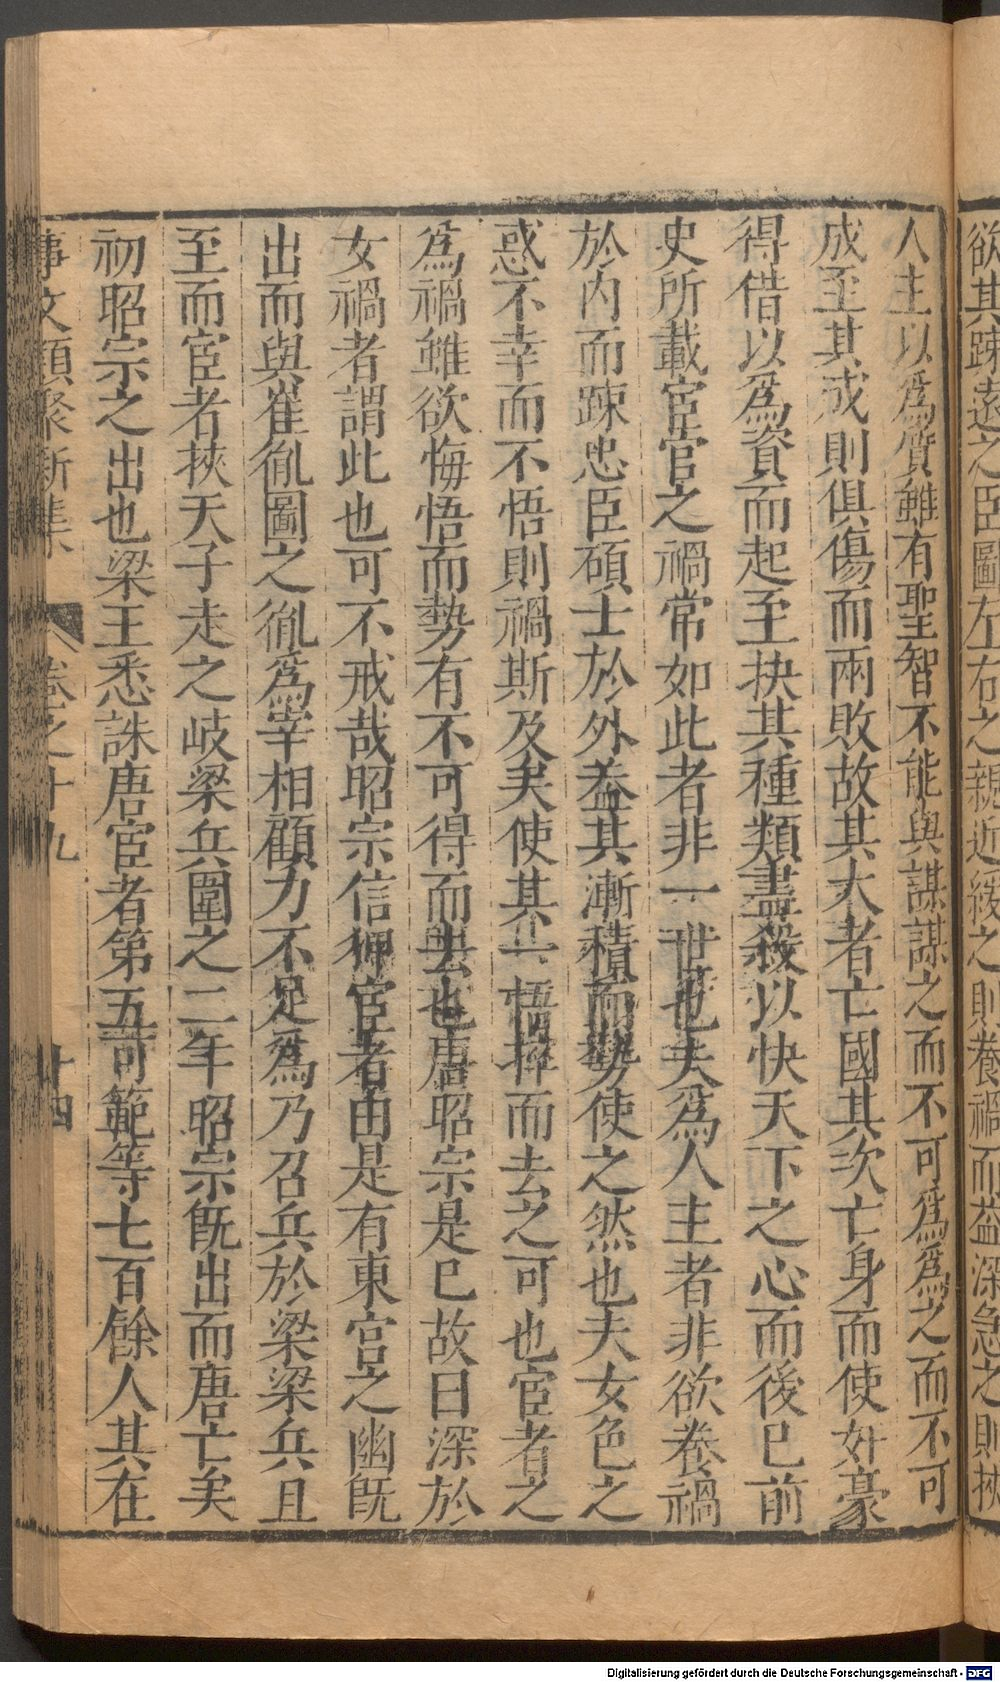 欲其踈遠之臣圖左右之親近緩之則養禍而益深急之則挾
人主以爲質雖有聖智不能與謀謀之而不可爲爲之而不可
成至其成則俱傷而兩敗故其大者亡國其次亡身而使奸豪
得借以爲資而起至抉其種類盡殺以快天下之心而後已前
史所載宦官之禍常如此者非一世也夫爲人主者非欲養禍
於内而踈忠臣碩士於外葢其漸積而勢使之然也夫女色之
惑不幸而不悟則禍斯及矣使其一悟捽而去之可也宦者之
爲禍雖欲悔悟而勢有不可得而去也唐昭宗是已故曰深於
女禍者謂此也可不戒哉昭宗信狎宦者由是有東宫之幽旣
出而與崔胤圖之胤爲宰相顧力不足爲乃召兵於梁梁兵且
至而宦者挾天子走之岐梁兵圍之二年昭宗旣出而唐亡矣
初昭宗之出也梁王悉誅唐宦者第五可範等七百餘人其在
事文類聚新集 卷之十九 十四
Digitalisierung gefördert durch die Deutsche Forschungsgemeinschaft - DFG